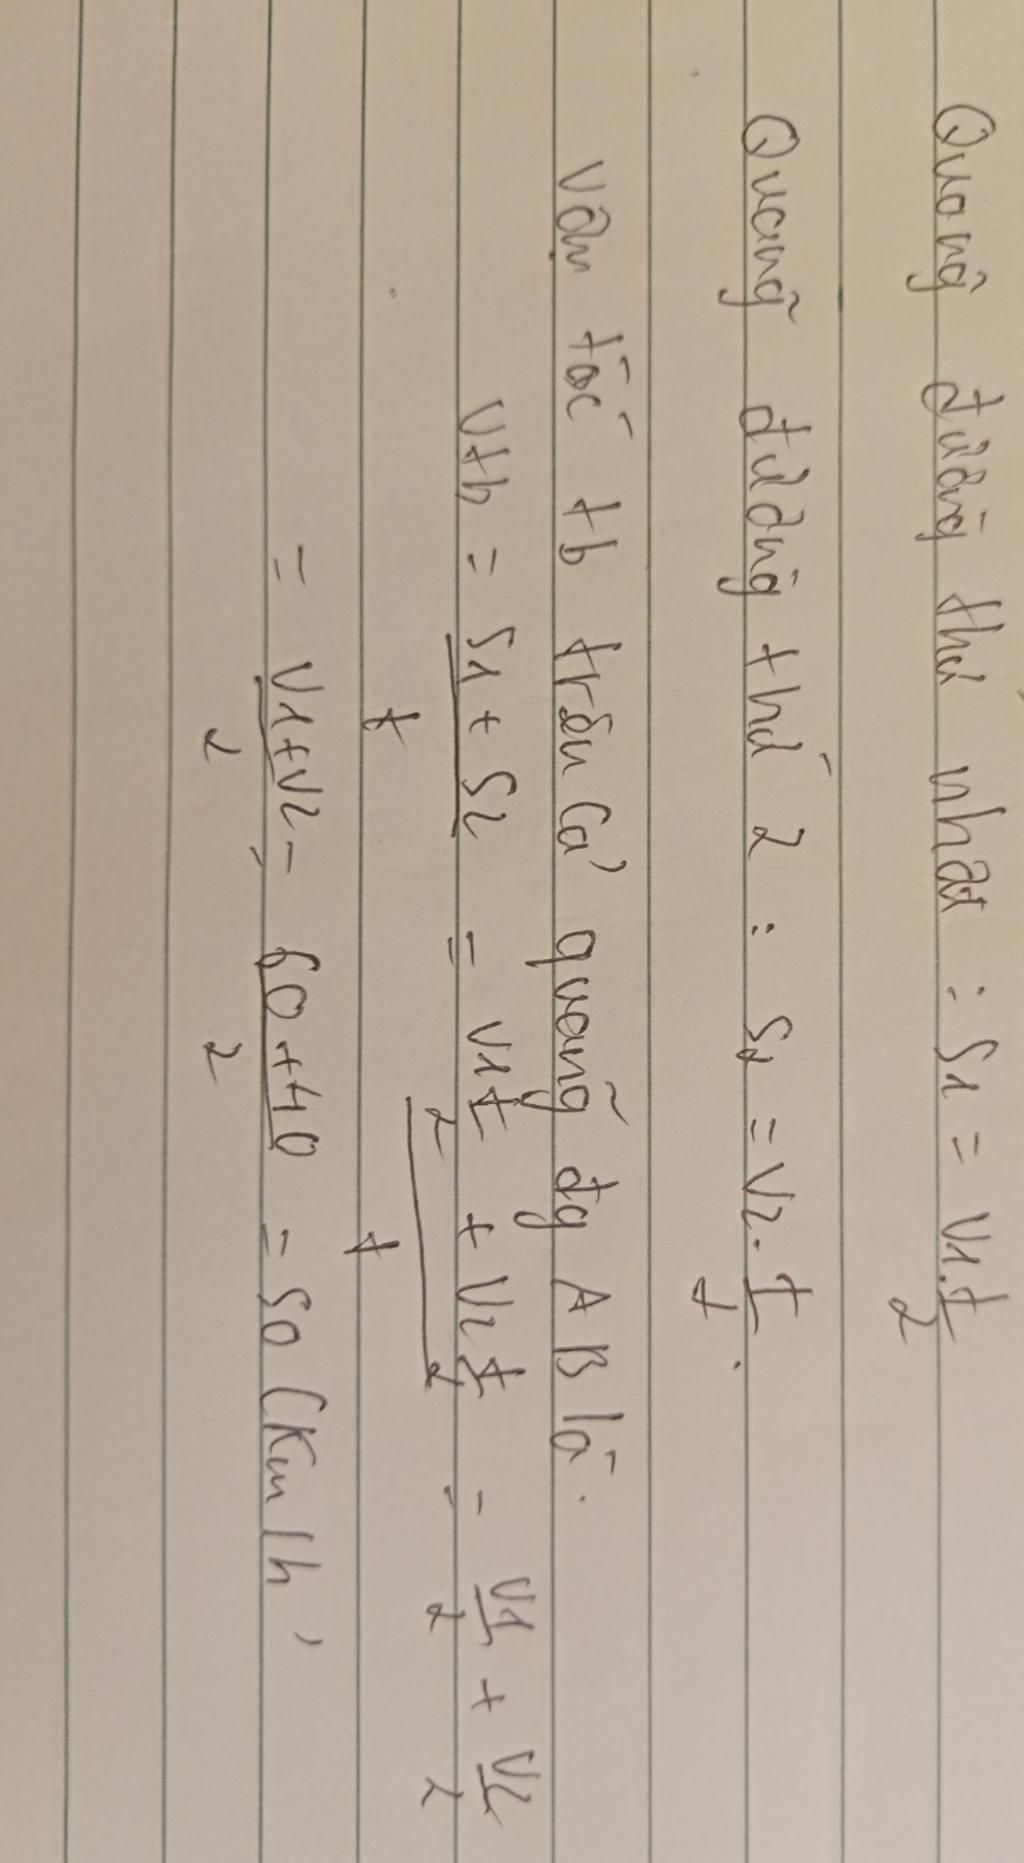 Quãng đường thứ nhất : S1 = V1.t/2
Quãng đường thứ 2 : S2 = V2. t/t.
Vận tốc tb trên cả quãng đg AB là.
Vtb = (S1 + S2)/t = (V1 t/2 + V2 t/2)/t = V1/2 + V2/2
= (V1+V2)/2 = (60+40)/2 = 50 (Km/h)